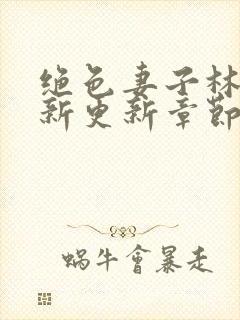 绝色妻子林
新更新章节
蜗牛會暴走